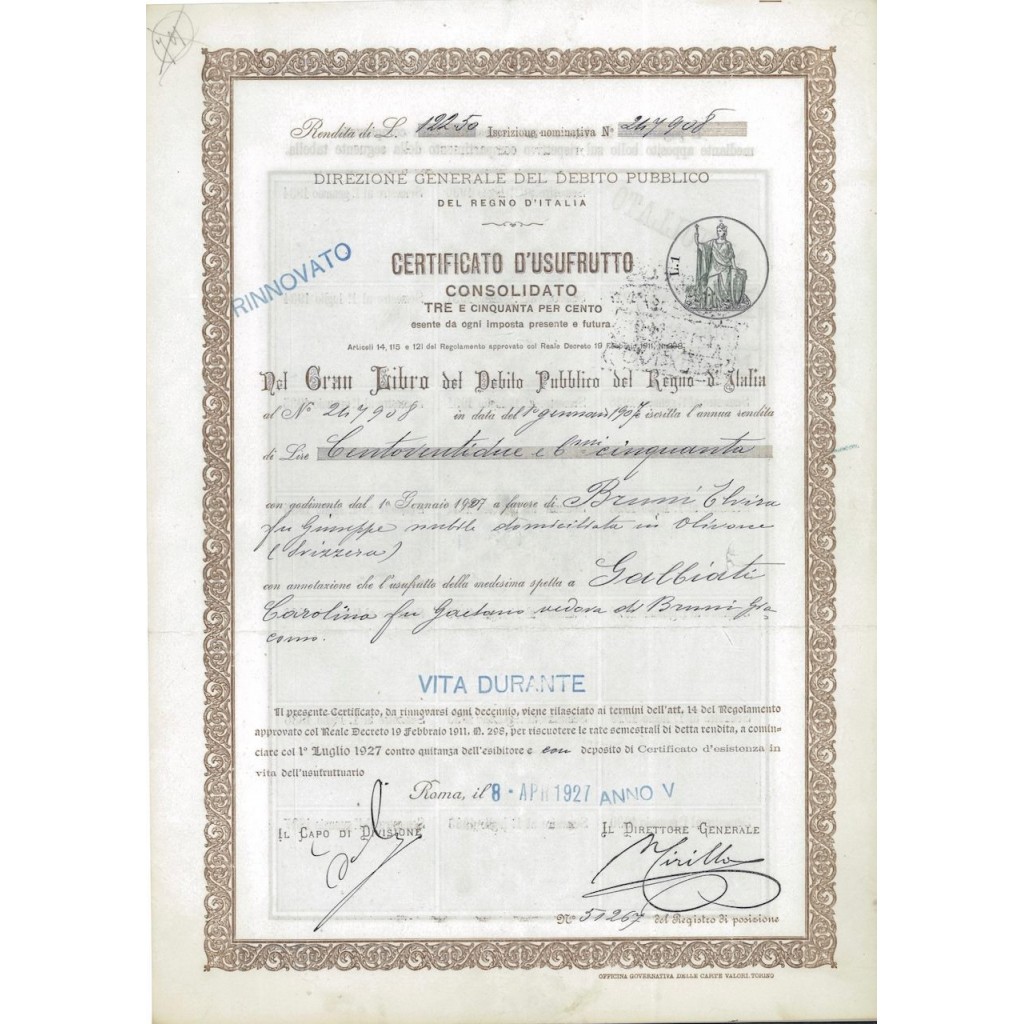 Rendita di L. 122.50 Iscrizione nominativa N° 247908
mediante apposito bollo sul rispettivo compartimento della seguente tabella
DIREZIONE GENERALE DEL DEBITO PUBBLICO
DEL REGNO D'ITALIA
RINNOVATO
L.1
CERTIFICATO D'USUFRUTTO
CONSOLIDATO
TRE E CINQUANTA PER CENTO
esente da ogni imposta presente e futura.
Articoli 14, 115 e 121 del Regolamento approvato col Reale Decreto 19 Febbraio 1911, N. 298.
Nel Gran Libro del Debito Pubblico del Regno d'Italia
al N° 247908 in data del 1° gennaio 1907 è iscritta l'annua rendita
di Lire Centoventidue e C.mi cinquanta
con godimento dal 1° Gennaio 1927 a favore di Bruni Elvira
fu Giuseppe nubile domiciliata in Olivone
(Svizzera)
con annotazione che l'usufrutto della medesima spetta a Galbiati
Carolina fu Gaetano vedova di Bruni Gia-
como.
VITA DURANTE
Il presente Certificato, da rinnovarsi ogni decennio, viene rilasciato ai termini dell'art. 14 del Regolamento
approvato col Reale Decreto 19 Febbraio 1911. N. 298, per riscuotere le rate semestrali di detta rendita, a comin-
ciare col 1° Luglio 1927 contro quitanza dell'esibitore e con deposito di Certificato d'esistenza in
vita dell'usufruttuario
Roma, il 8 - APR 1927 ANNO V
IL CAPO DI DIVISIONE
IL DIRETTORE GENERALE
Mirilla
N° 51267 del Registro di posizione
OFFICINA GOVERNATIVA DELLE CARTE VALORI. TORINO